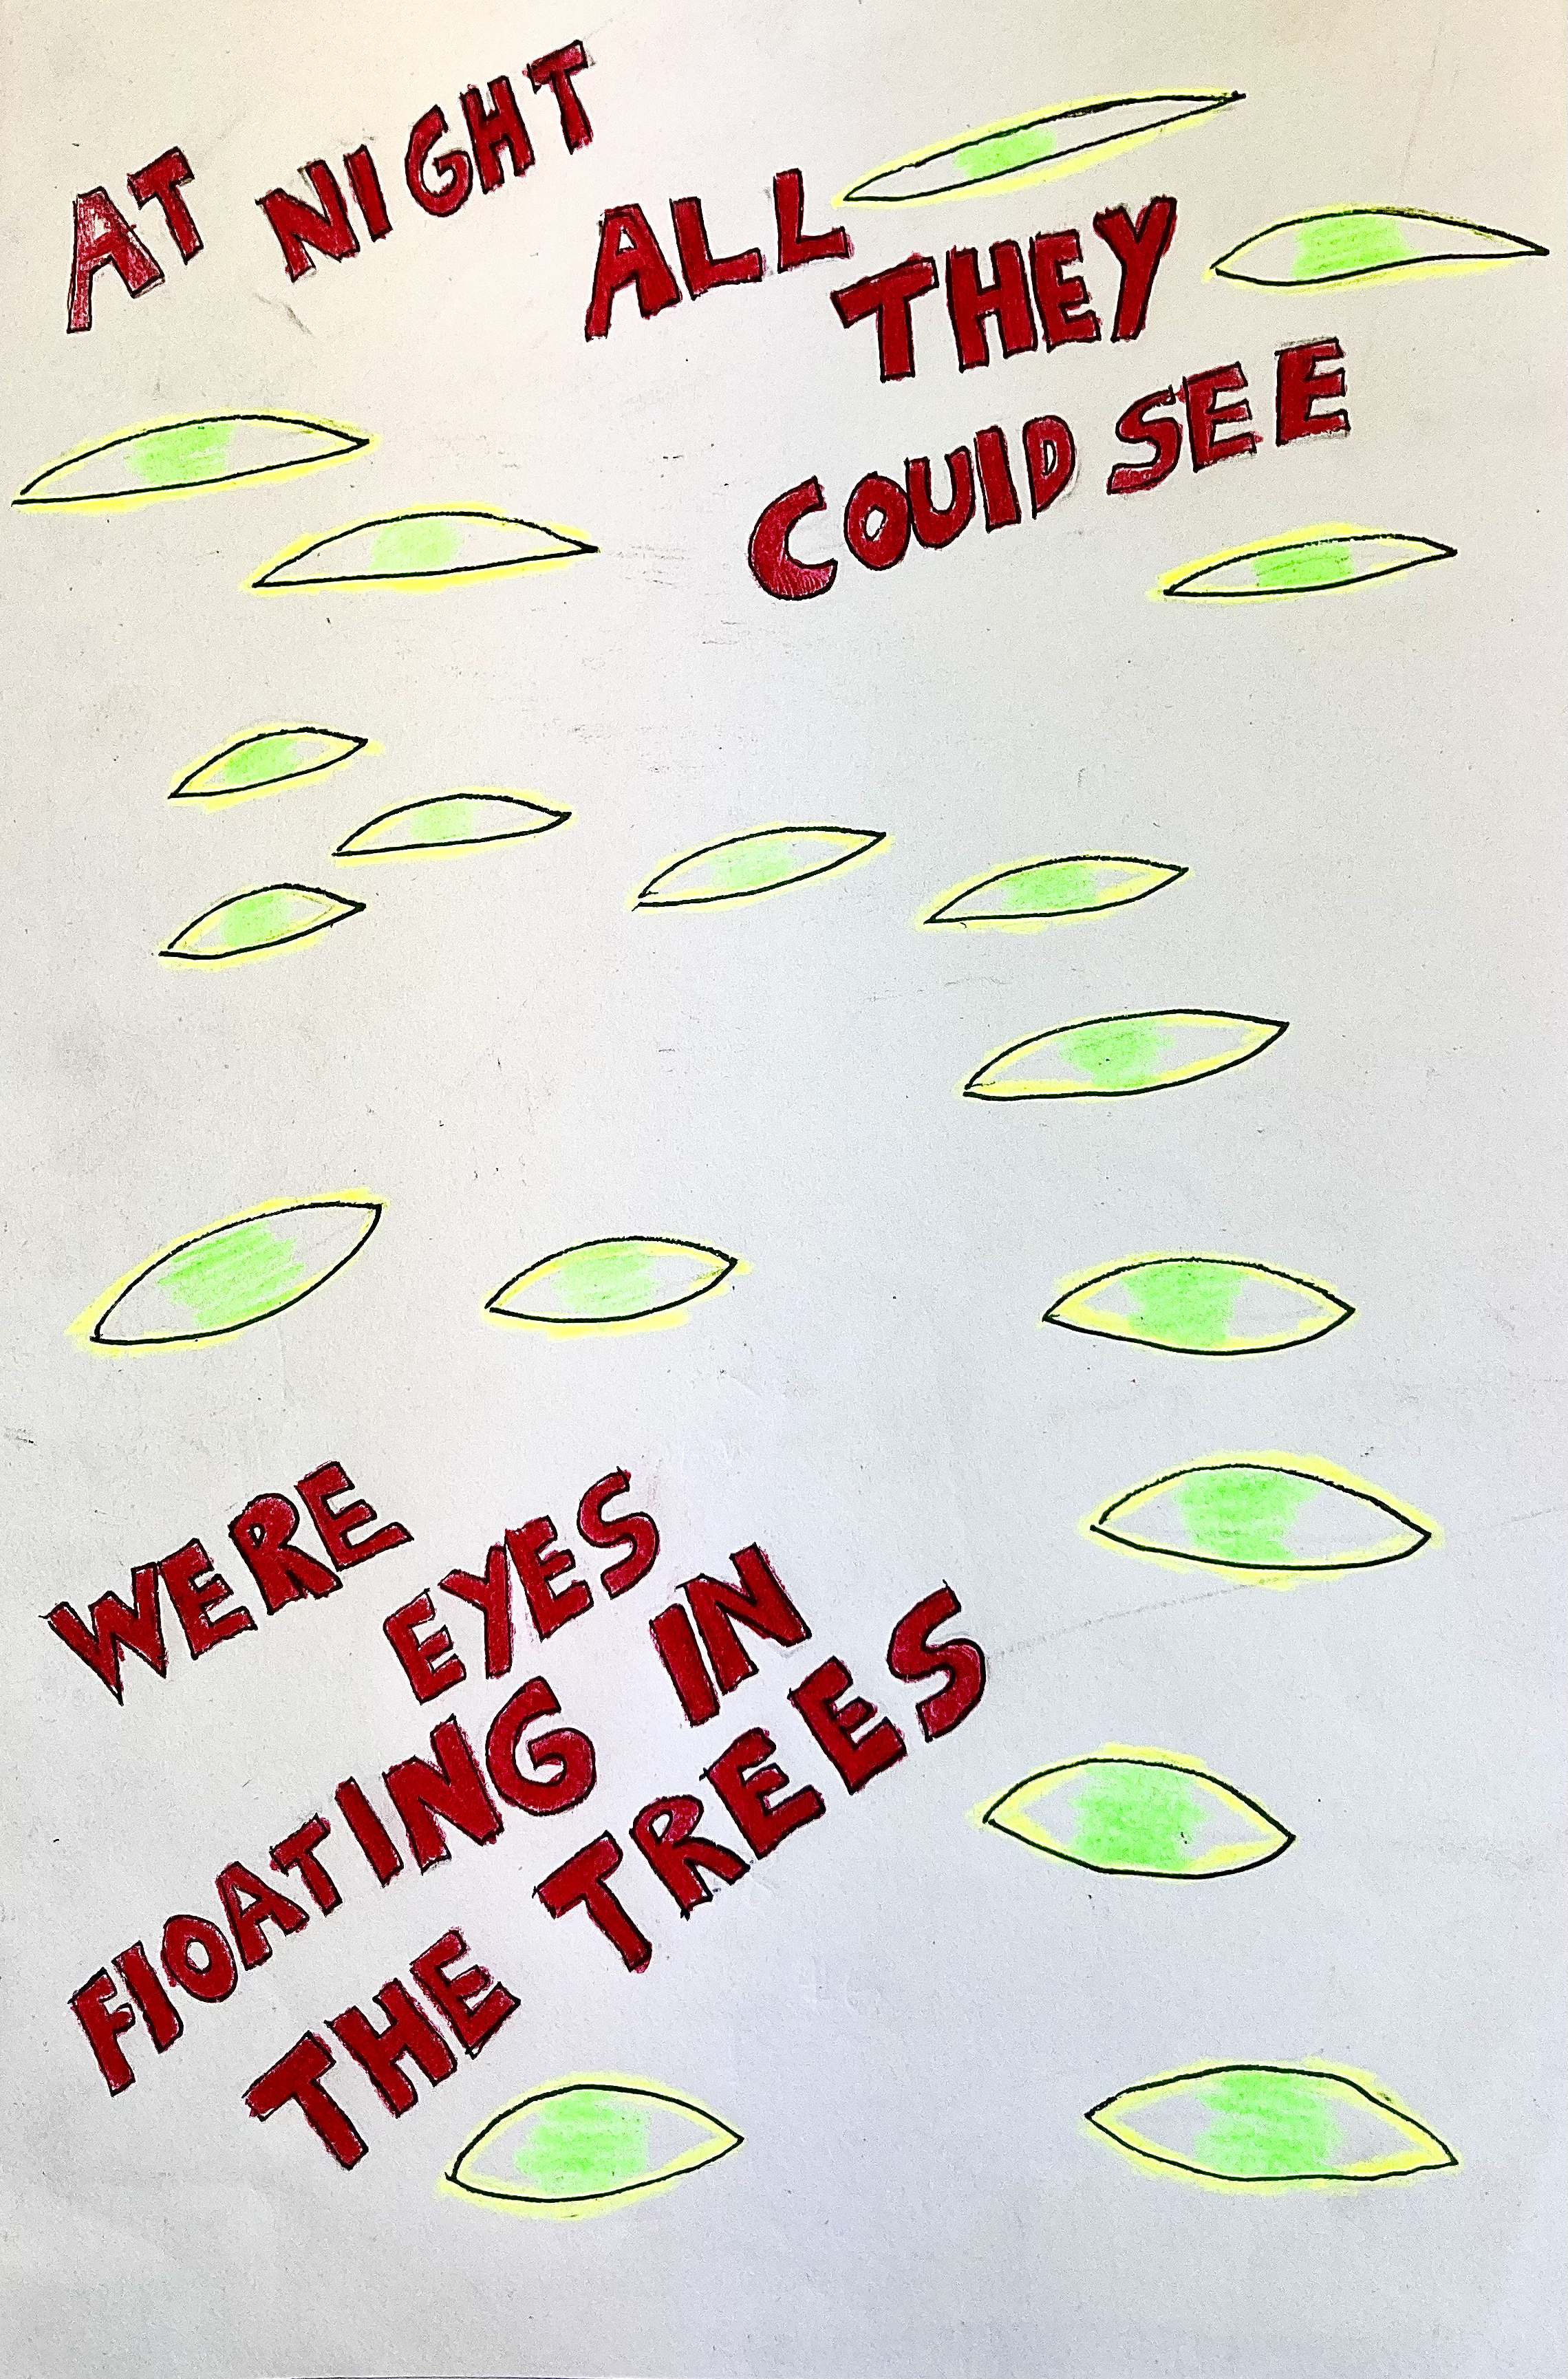 AT NIGHT
ALL
THEY
COUlD SEE
WERE
EYES
FlOATING IN
THE TREES